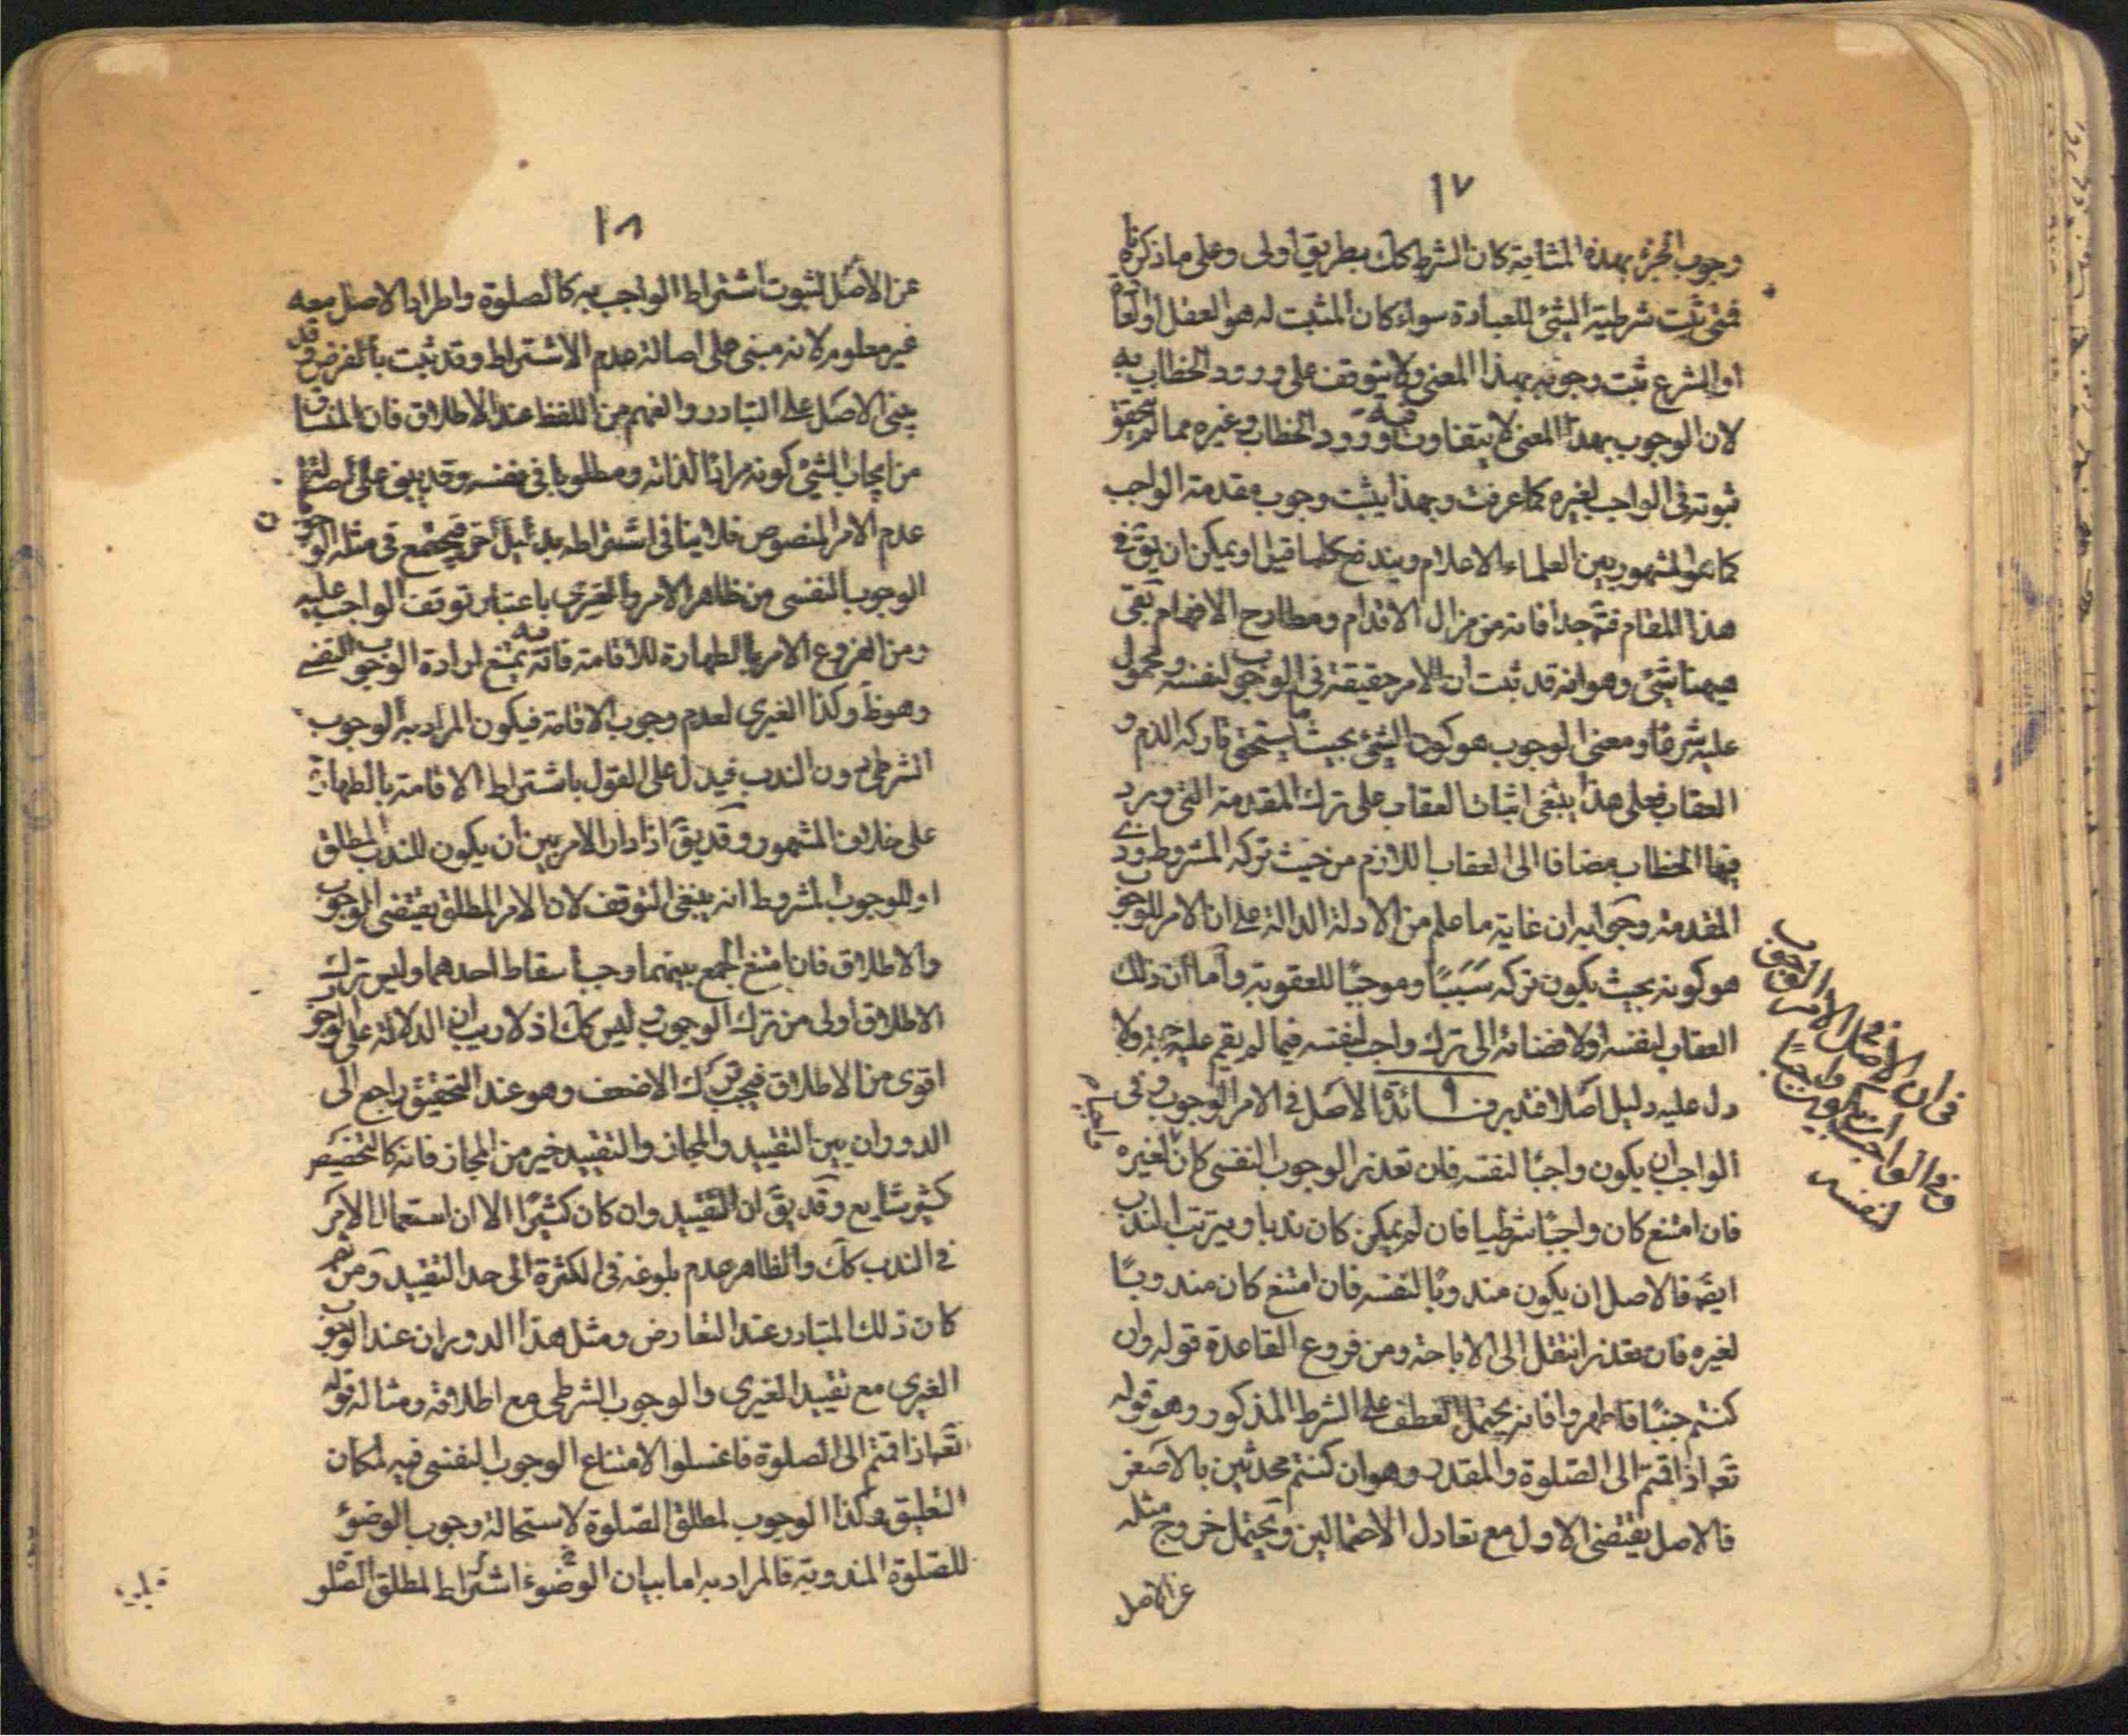 ١٧
وجوب الجزء بهذه المثابة كان الشرط كك بطريق اولى وعلى ما ذكرنا
فمتى ثبت شرطية الشئ للعبادة سواء كان المثبت له هو العقل او العادة
او الشرع ثبت وجوبه بهذا المعنى ولا يتوقف على ورود الخطاب به
لان الوجوب بهذا المعنى لا يتفاوت فيه ورود الخطاب وغيره مما لم يتحقق
ثبوته فى الواجب لغيره كما عرفت وبهذا يثبت وجوب مقدمة الواجب
كما هو المشهور بين العلماء الاعلام ويندفع كلما قيل او يمكن ان يق فى
هذا المقام فتم جدا فانه من مزال الاقدام ومطارح الافهام بقى
هيهنا شئ وهو انه قد ثبت ان الامر حقيقة فى الوجوب لنفسه ومحمول
عليه شرعا ومعنى الوجوب هو كون الشئ بحيث يستحق تاركه الذم و
العقاب فعلى هذا ينبغى اثبات العقاب على ترك المقدمة التى ورد
فيها الخطاب مضافا الى العقاب اللازم من حيث تركه المشروط وذى
المقدمة وجوابه ان غاية ما علم من الادلة الدالة على ان الامر للوجوب
هو كونه بحيث يكون تركه سببًا وموجبًا للعقوبة واما ان ذلك
العقاب لنفسه او لافضائه الى ترك واجب لنفسه فيما لم يقم عليه حجة ولا
دل عليه دليل اصلا فتدبر فائدة الاصل فى الامر الوجوب وفى
الواجب ان يكون واجبًا لنفسه فان تعذر الوجوب النفسى كان لغيره
فان امتنع كان واجبًا شرطيا فان لم يمكن كان ندبا ويترتب الندب
ايضًا فالاصل ان يكون مندوبًا لنفسه فان امتنع كان مندوبًا
لغيره فان تعذر انتقل الى الاباحة ومن فروع القاعدة قوله وان
كنتم جنبًا فاطهروا فانه يحتمل العطف على الشرط المذكور وهو قوله
تعالى اذا قمتم الى الصلوة والمقدر وهو ان كنتم محدثين بالاصغر
فالاصل يقتضى الاول مع تعادل الاحتمالين ويحتمل خروج مثله
عن الاصل
فى ان الاصل فى الامر الوجوب
وفى الواجب ان يكون واجبًا
لنفسه
١٨
عن الاصل لثبوت اشتراط الواجب به كالصلوة واطراد الاصل معه
غير معلوم لانه مبنى على اصالة عدم الاشتراط وقد ثبت بالفرض وقد
يبنى الاصل على التبادر والفهم من اللفظ عند الاطلاق فان المنساق
من ايجاب الشئ كونه مرادًا لذاته ومطلوبا فى نفسه وقد يبنى على اصالة
عدم الامر المنصوص فلا ينافى اشتراطه بدليل آخر فيجتمع فى مثله الوجوب
الوجوب النفسى من ظاهر الامر والغيرى باعتبار توقف الواجب عليه
ومن الفروع الامر بالطهارة للاقامة فانه يمتنع فيه ارادة الوجوب النفسى
وهو ظ وكذا الغيرى لعدم وجوب الاقامة فيكون المراد به الوجوب
الشرطى دون الندب فيدل على القول باشتراط الاقامة بالطهارة
على خلاف المشهور وقد يق اذا دار الامر بين ان يكون للندب المطلق
او للوجوب المشروط انه ينبغى التوقف لان الامر المطلق يقتضى الوجوب
والاطلاق فان امتنع الجمع بينهما وجب اسقاط احدهما وليس ترك
الاطلاق اولى من ترك الوجوب وليس كك اذ لا ريب ان الدلالة على الوجوب
اقوى من الاطلاق فيجب ترك الاضعف وهو عند التحقيق راجع الى
الدوران بين التقييد والمجاز والتقييد خير من المجاز فانه كالتخصيص
كثير شايع وقد يق ان التقييد وان كان كثيرًا الا ان استعمال الامر
فى الندب كك والظاهر عدم بلوغه فى الكثرة الى حد التقييد ومن ثم
كان ذلك المتبادر عند التعارض ومثل هذا الدوران عند الوجوب
الغيرى مع تقييد الغيرى والوجوب الشرطى مع اطلاقه ومثاله قوله
تعالى اذا قمتم الى الصلوة فاغسلوا الامتناع الوجوب النفسى فيه لمكان
التعليق وكذا الوجوب لمطلق الصلوة لاستحالة وجوب الوضوء
للصلوة المندوبة فالمراد به اما بيان الوضوء اشتراط لمطلق الصلو